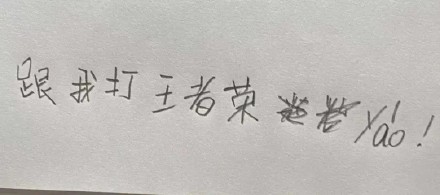 跟我打王者荣yáo!